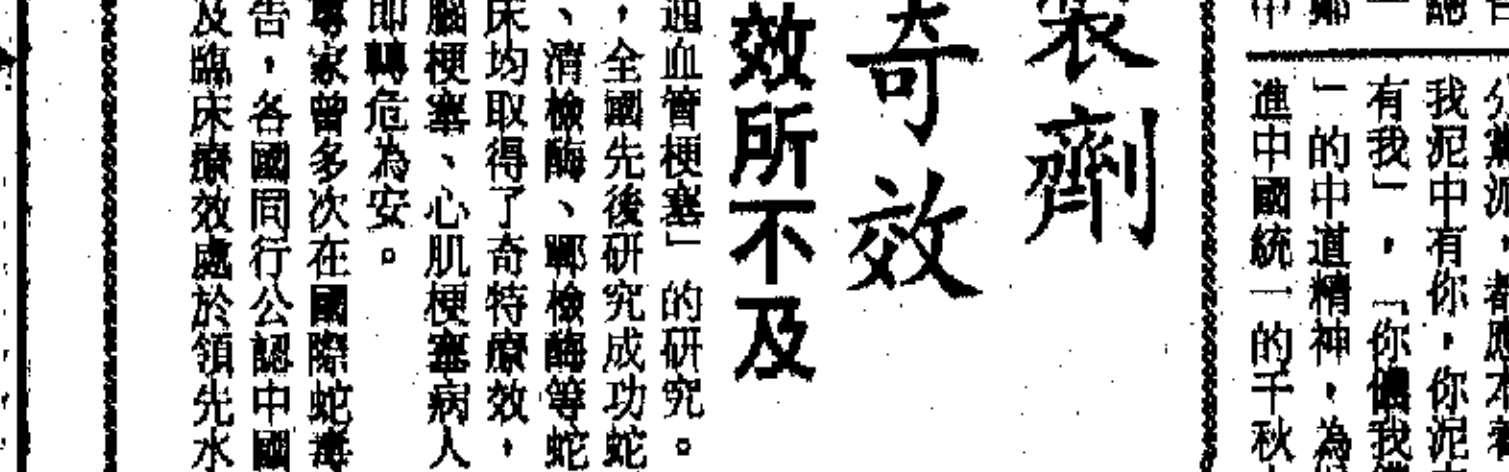 分派,都應本着
我泥中有你,你泥中
有我」,「你儂我儂
」的中道精神,為
進中國統一的千秋
製劑
奇效
效所不及
通血管梗塞」的研究。
,全國先後研究成功蛇
、清檢酶、鄲檢酶等蛇
床均取得了奇特療效,
腦梗塞、心肌梗塞病人
即轉危為安。
專家曾多次在國際蛇毒
告,各國同行公認中國
及臨床療效處於領先水